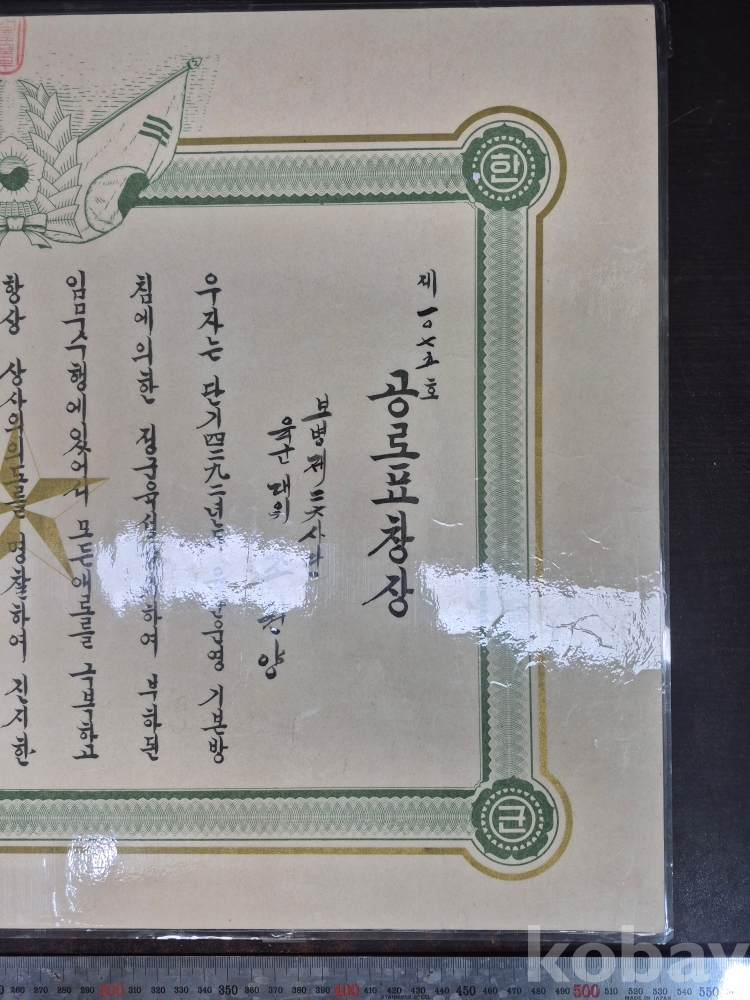 제一〇七五호
공로표창장
보병제
육군대위
양
우자는 단기四二九二년도 기본방
침에의한 하여 부하된
임무수행에있어서 모든애로를 극복하고
항상 상사의의도를 명찰하여 진지한
한
군
kobay
260 270 280 290 300 310 320 330 340 350 360 370 380 390 400 410 420 430 440 450 460 470 480 490 500 510 520 530 540 550
STAINLESS STEEL
MADE IN JAPAN